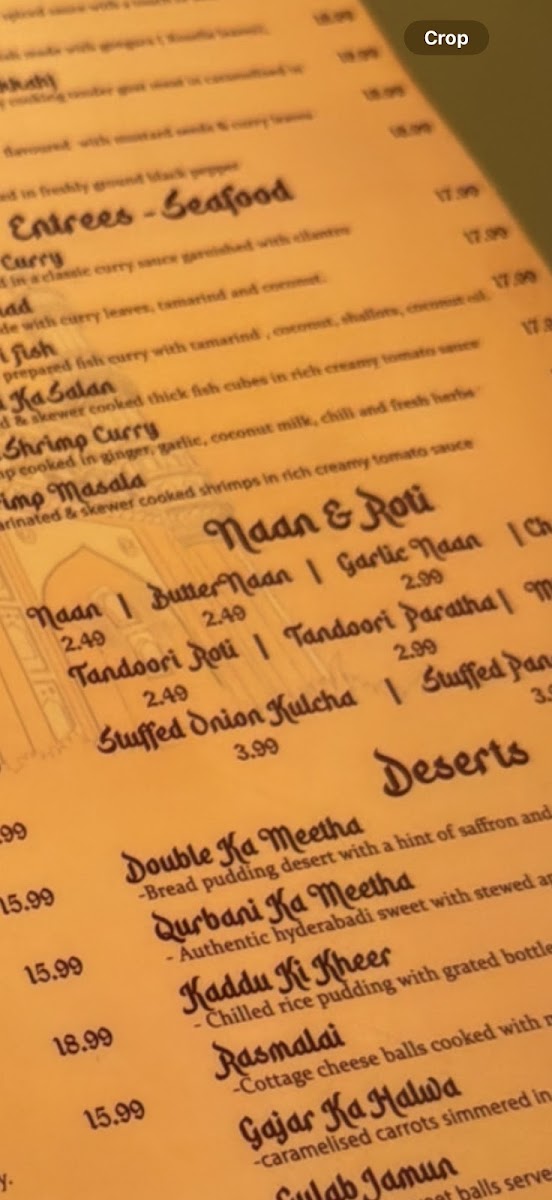 Crop
18.99
18.99
18.99
flavoured with mustard seeds & curry leaves
18.99
ed in freshly ground black pepper
Entrees - Seafood
17.99
Curry
d in a classic curry sauce garnished with cilantro
17.99
de with curry leaves, tamarind and coconut.
17.99
i fish
prepared fish curry with tamarind , coconut, shallots, coconut oil.
17.9
KaSalan
d & skewer cooked thick fish cubes in rich creamy tomato sauce
Shrimp Curry
mp cooked in ginger, garlic, coconut milk, chili and fresh herbs
imp Masala
arinated & skewer cooked shrimps in rich creamy tomato sauce
Naan & Roti
Naan | ButterNaan | Garlic Naan | Ch
2.49 2.49 2.99
Tandoori Roti | Tandoori Paratha | M
2.49 2.99
Stuffed Onion Kulcha | Stuffed Pan
3.99 3.9
Deserts
.99
Double Ka Meetha
-Bread pudding desert with a hint of saffron and
15.99
Qurbani Ka Meetha
- Authentic hyderabadi sweet with stewed ap
15.99
Kaddu Ki Kheer
- Chilled rice pudding with grated bottle
18.99
Rasmalai
-Cottage cheese balls cooked with m
15.99
Gajar Ka Halwa
-caramelised carrots simmered in
Gulab Jamun
balls serve
y.